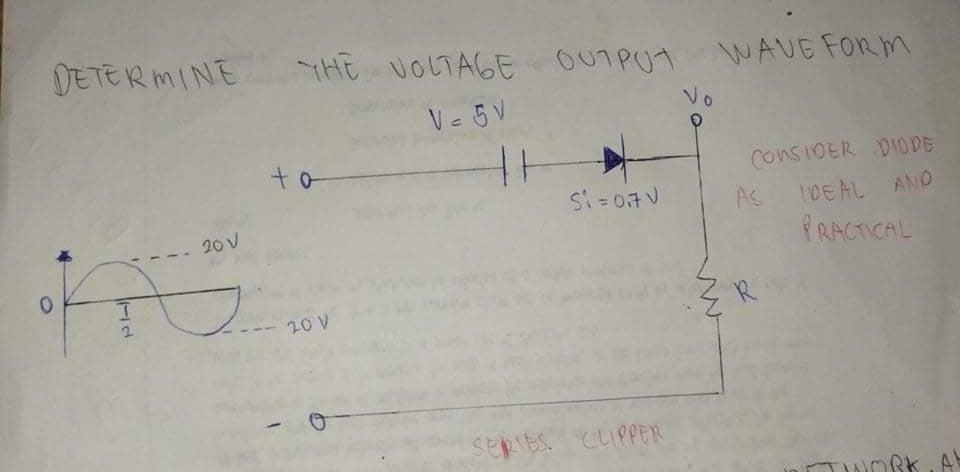 DETERMINE THE VOLTAGE OUTPUT WAVEFORM
V = 5V
Vo
+
Si = 0.7V
CONSIDER DIODE
AS IDEAL AND
PRACTICAL
20V
0
T
2
R
20V
-
SERIES CLIPPER